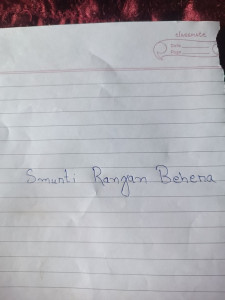 classmate
Date
Page
Smurti Ranjan Behera